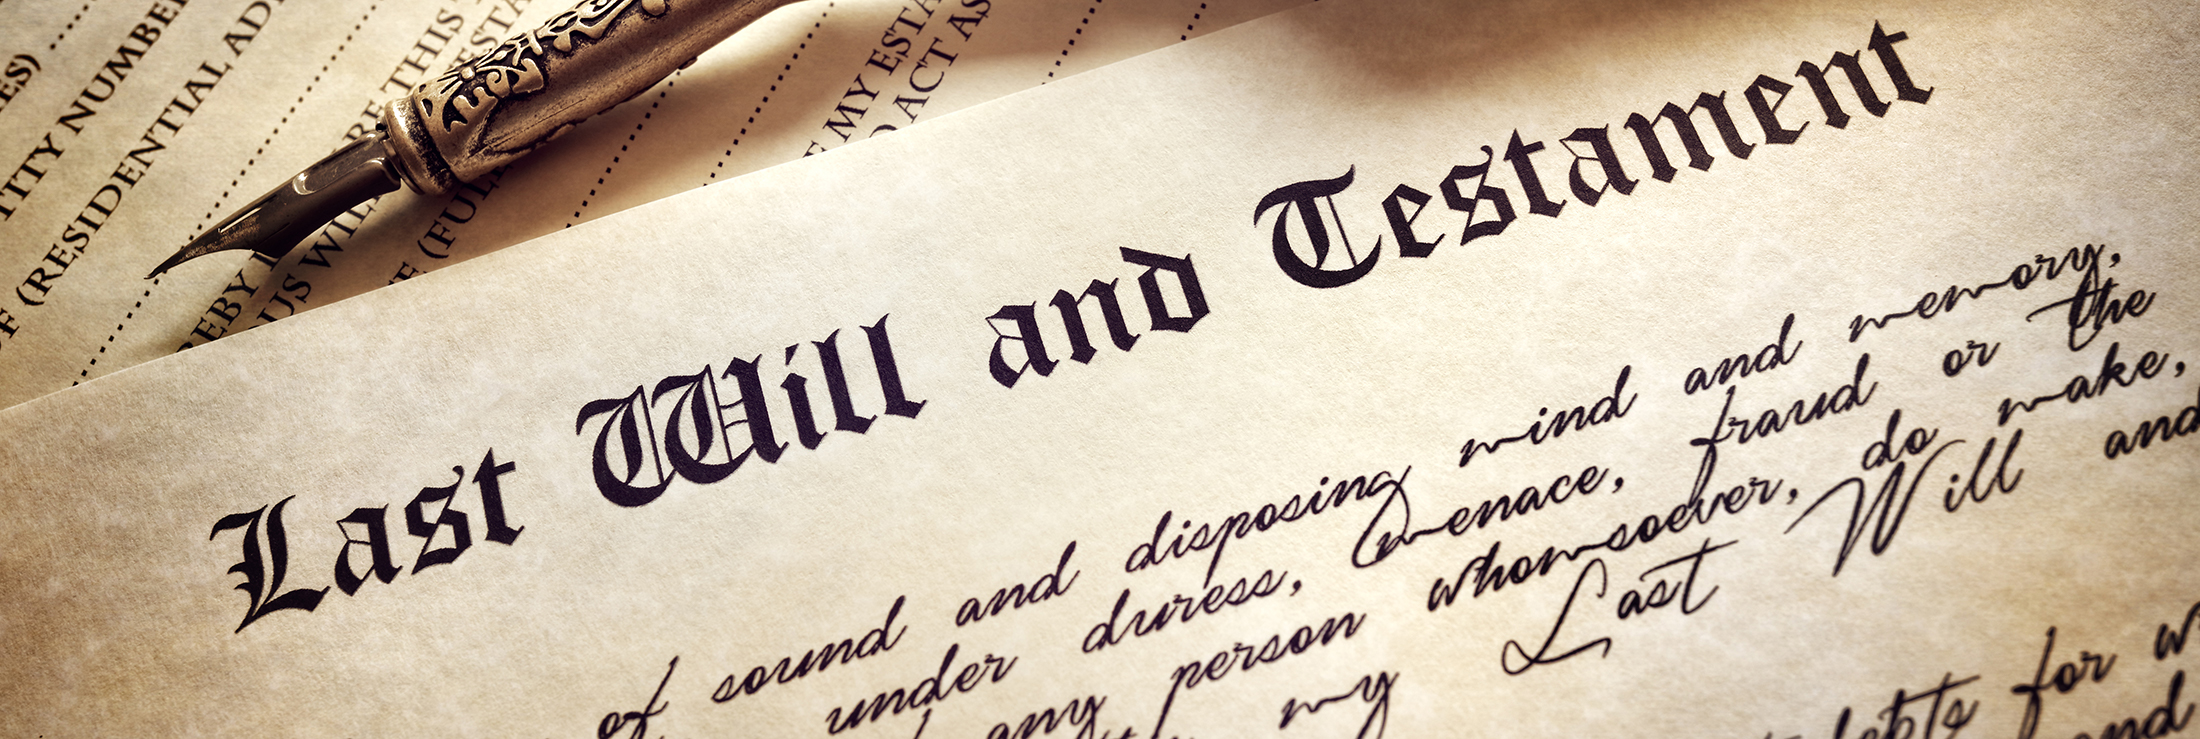 ES)
TITY NUMBER
F (RESIDENTIAL AD
EBY
US WIL
RE THIS
ESTA
E (FUL
E MY ESTA
O ACT AS
Last Will and Testament
of sound and disposing mind and memory,
under duress, menace, fraud or the
any person whomsoever, do make,
my Last Will and
debts for w
and